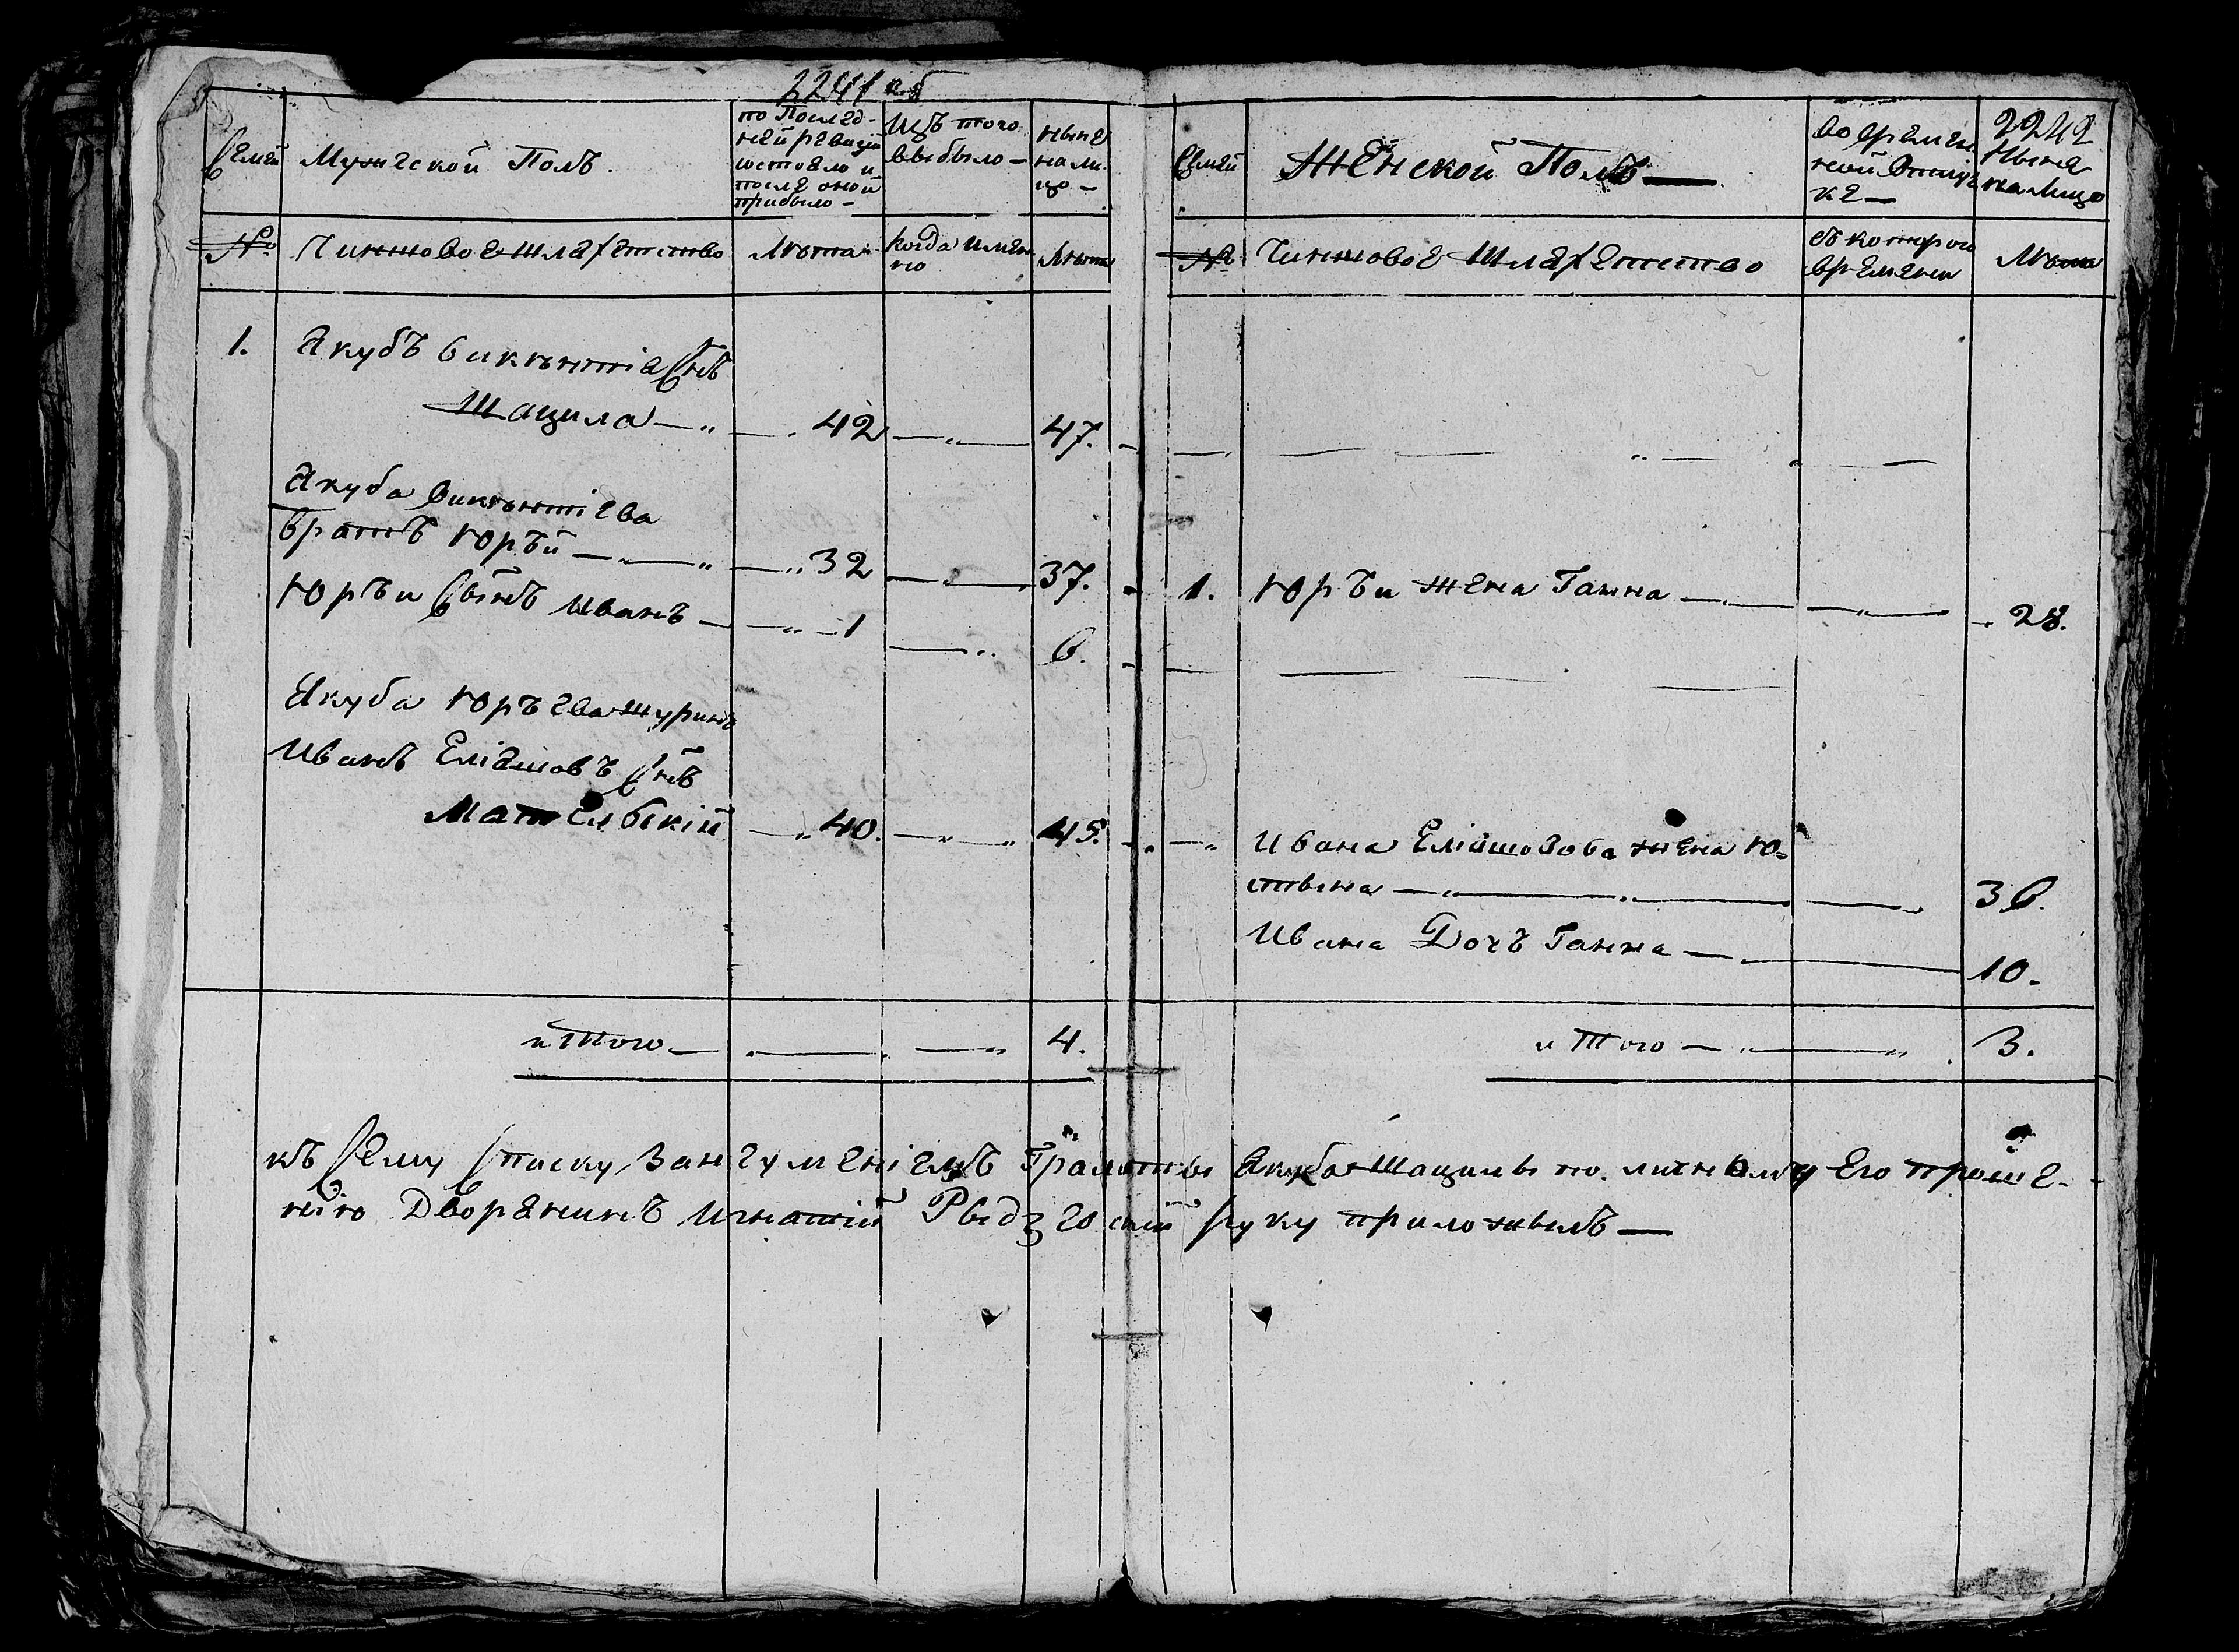 2241 об
Семей
Мужеской Полъ.
по Послед-
ней ревизіи
состояло и
после оной
прибыло —
Изъ того
выбыло —
ныне
на ли-
цо —
№
Чиншовое шляхетство
Лѣта
когда имен-
но
Лѣта
1. Якубъ викентіа Снъ
Шацила — 42 — 47.
Якуба викентіева
братъ юръи — 32 — 37.
юръи Сынъ иванъ — 1 — 6.
Якуба юръева шуринъ
Иванъ Еліяшовъ Снъ
40. — 45.
итого — 4.
2242
Семей
Женской Полъ —
во времен
ной отлуч
ке —
Ныне
на Лицо
№
Чиншовое Шляхетство
съ которого
времени
Лѣта
1. юръи жена Ганна — 28.
Ивана Еліяшовова жена ю-
стына — 36.
Ивана Дочъ Ганна — 10.
итого — 3.
къ Сему Списку занеуменіемъ Грамоты Якуба Шацилы по личному Его проше-
нію Дворянинъ игнатій руку приложылъ —